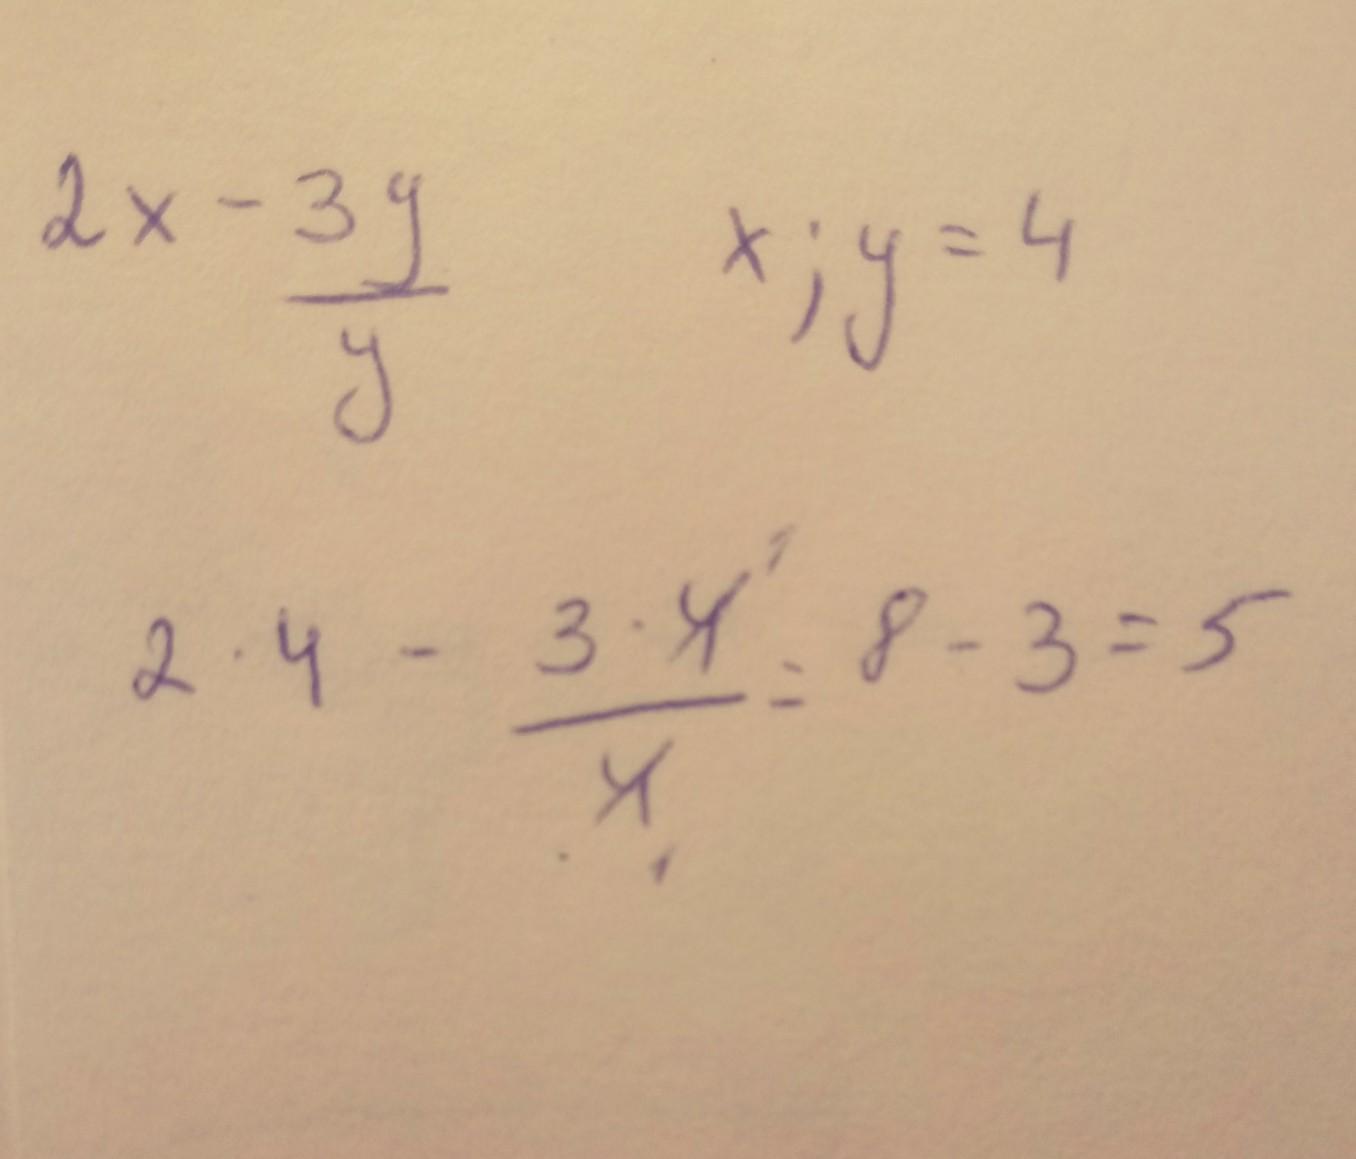 2x - 3y/y x; y = 4
2 · 4 - 3 · 4¹/4₁ = 8 - 3 = 5